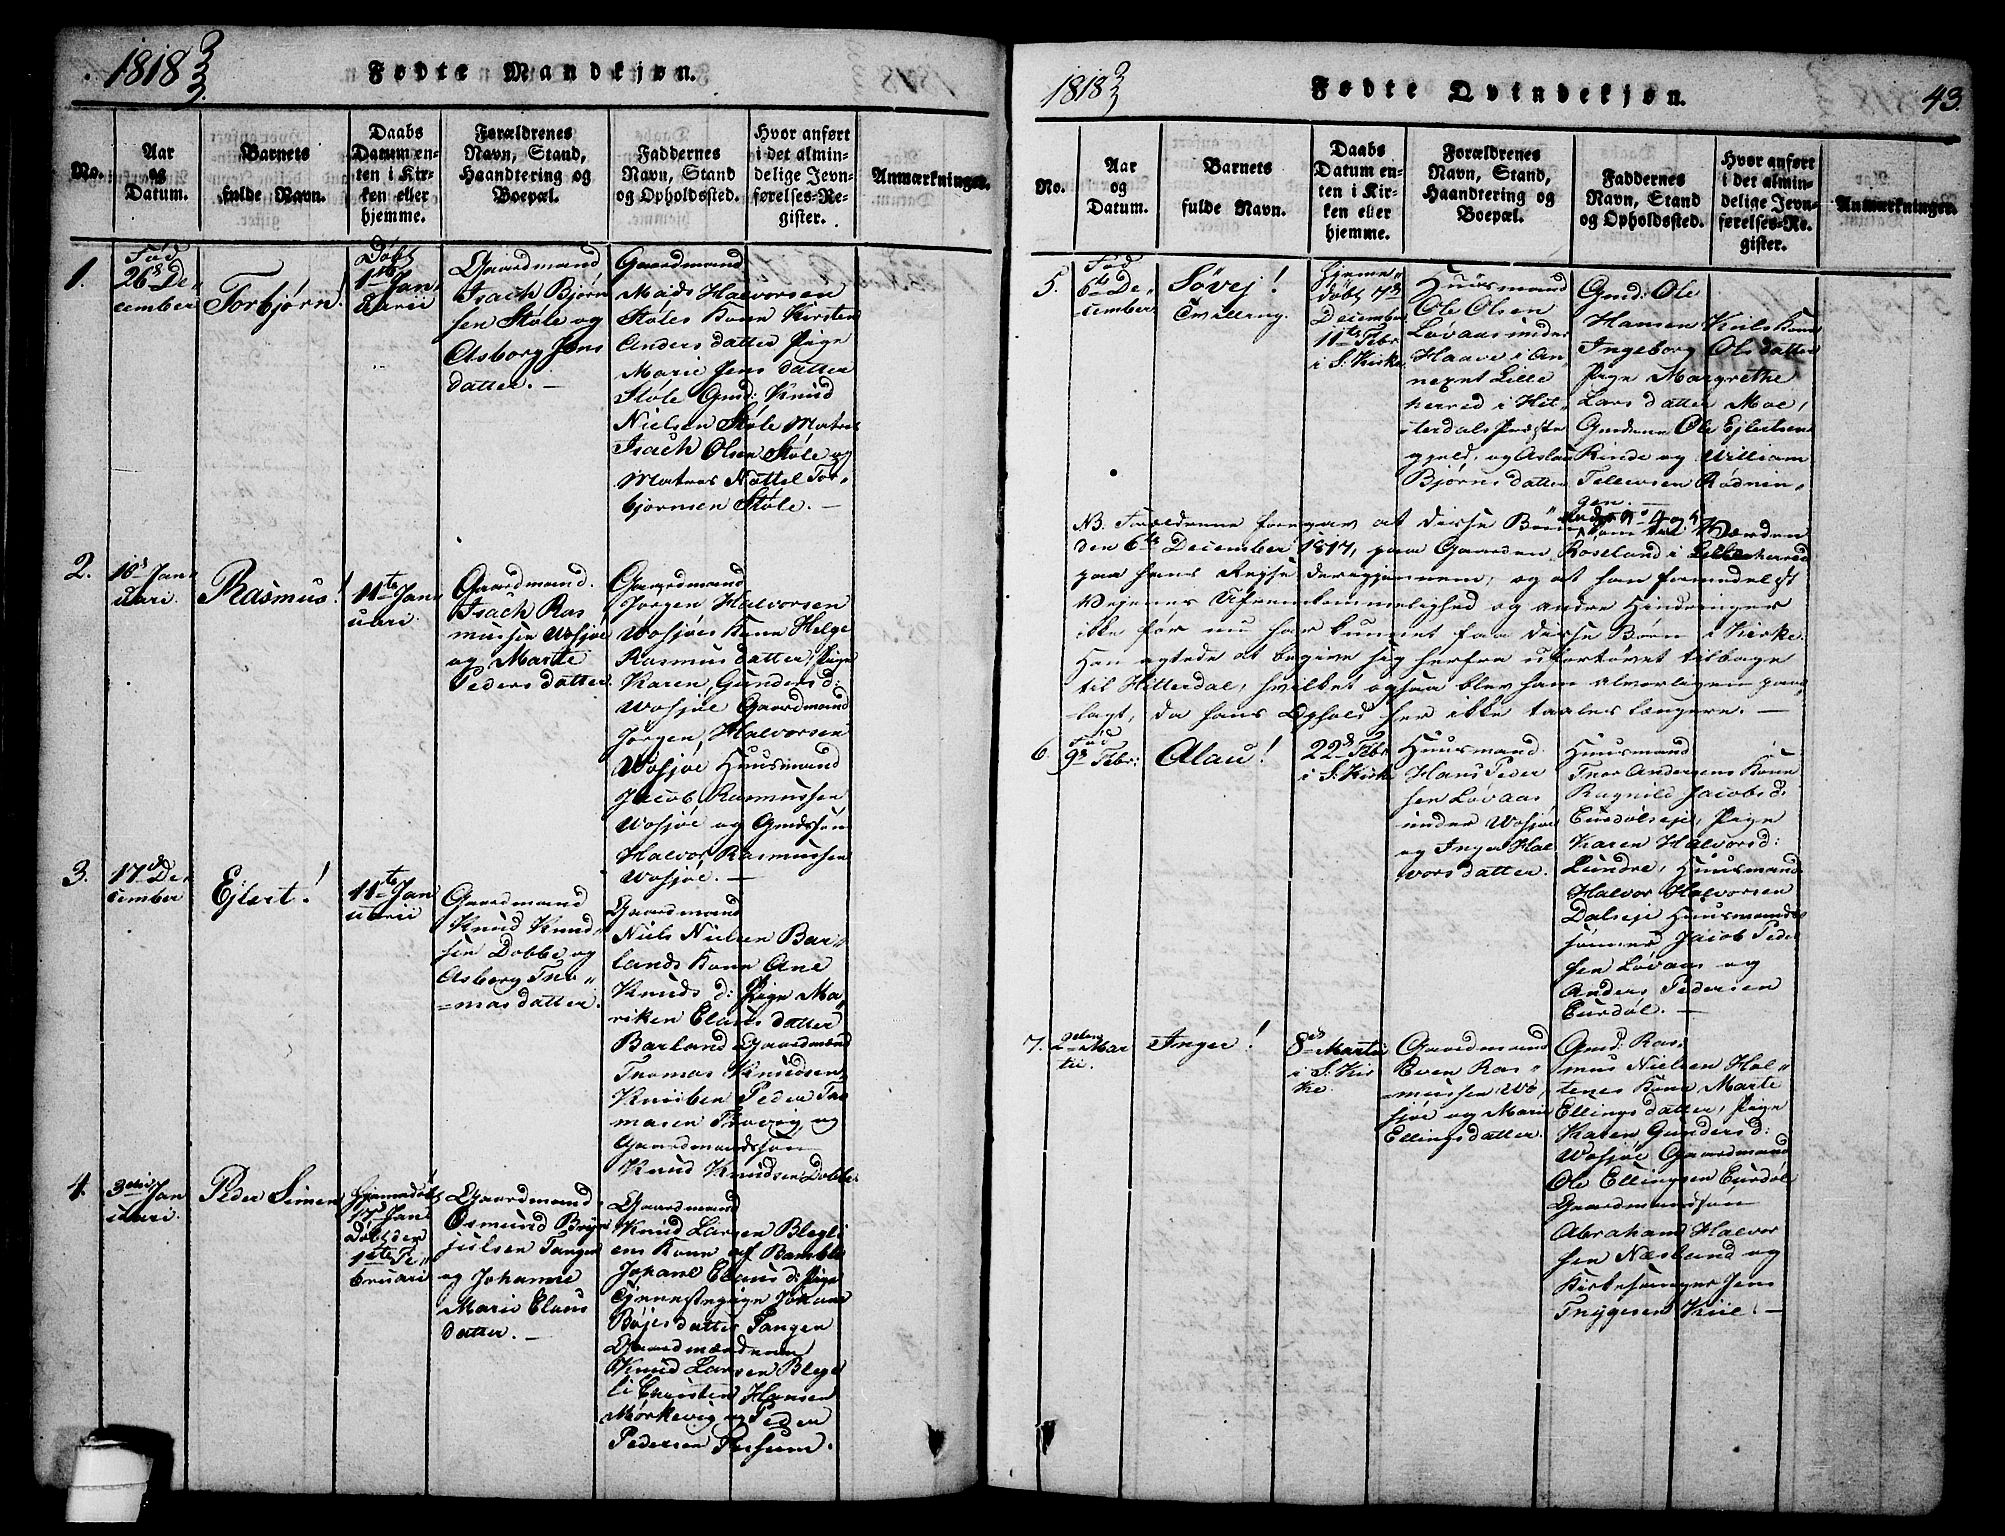 1818
Fødte Mandkjøn.
No.
Aar
og
Datum.
Barnets
fulde Navn.
Daabs
Datum en-
ten i Kir-
ken eller
hjemme.
Forældrenes
Navn, Stand,
Haandtering og
Boepæl.
Faddernes
Navn, Stand
og Opholdssted.
Hvor anført
i det almin-
delige Jevn-
førelses-Re-
gister.
Anmærkninger.
1.
Fød
26 De-
cember
Torbjørn!
Døbt
1ste Jan
uarii
Gaardmand
Isach Bjørn
sen Støle og
Asborg Jens
datter. —
Gaardmand
Mads Halvorsen
Støles Kone Kirsten
Anders datter Pige
Marie Jens datter
Støle Gmd: Knud
Nielsen Støle Matros
Isach Olsen Støle og
Matros Nottel Tor-
bjørnsen Støle. —
2.
10 Jan
uari.
Rasmus!
11te Jan
uari
Gaardmand.
Isach Ras
mussen Wosjøe
og Marte
Peders datter
Gaardmand
Jørgen Halvorsen
Wosjøes Kone Helge
Rasmus datter, Pige
Karen Gunders d:
Wosjøe Gaardmand
Jørgen Halvorsen
Wosjøe Huusmand
Jacob Rasmussen
Wosjøe og Gmdssøn
Halvor Rasmussen
Wosjøe. —
3.
17 De-
cember
Ejlert!
11te Jan
uarii
Gaardmand
Knud Knud-
sen Dobbe og
Asberg Tho-
=mas datter.
Gaardmand
Niels Nielsen Bar-
lands Kone Ane
Knuds d: Pige Ma-
riken Claus datter
Barland Gaardmænd
Thomas Knudsen
Knuiben Peder Tho
masen Trovig og
Gaardmandssøn
Knud Knudsen Dobbe
4.
3 Jan
uari.
Peder Simen
Hjemmedøbt
17 Jan
Døbt den
1ste Fe-
bruari
Gaardmand
Osmund Bryn
julsen Tangen
og Johanne
Marie Claus
datter. —
Gaardmand
Knud Larsen Blegli
ens Kone af Bamble
Johane Claus d: Pige
Tjenestepige Johane
Bøjes datter Tangen
Gaardmændene
Knud Larsen Blegli
li Christen Hansen
Mørkevig og Peder
Pedersen Fossum.
1818
Fødte Qvindekjøn.
43.
No.
Aar
og
Datum.
Barnets
fulde Navn.
Daabs
Datum en-
ten i Kir-
ken eller
hjemme.
Forældrenes
Navn, Stand,
Haandtering og
Boepæl.
Faddernes
Navn, Stand
og Opholdssted.
Hvor anført
i det almin-
delige Jevn-
førelses-Re-
gister.
Anmærkninger.
5.
Fød
6te De-
cember
Søvej!
Tvilling.
Hjemme-
døbt 7
December
11te Febr
i S. Kirke
Huusmand
Ole Olsen
Løvaas under
Haave i An-
nexet Lille
herred i Hit-
terdals Præste
gjeld, og Aslau
Bjørns datter
Gmd: Ole
Hansen Kiils Kone
Ingeborg Ols datter
Pige Margrethe
Lars datter Moe,
Gmdene Ole Ejlertsen
Rinde og William
Tellevsen Rødnin-
gen. —
NB. Forældrene foregav at disse Børn kom til Verden
den 6te December 1817, paa Gaarden Roseland i Lilleherred
paa hans Rejse derigjennem, og at han formedelst
Vejenes Ufremkommelighed og andre Hindringer
ikke før nu har kunnet faa disse Børn i Kirke.
Han agtede at begive sig herfra ufortøvet tilbage
til Hitterdal, hvilket ogsaa blev ham alvorligen paa-
lagt, da hans Ophold her ikke taales længere. —
6.
Fød
9 Febr:
Alau!
22 Febr
i S. Kirke
Huusmand
Hans Peder
sen Løvaas
under Wosjøe
og Inger Hal
vors datter.
Huusmand
Thor Andersens Kone
Ragnild Jacobs d:
Eurdølseje, Pige
Karen Halvors d:
Lundre, Huusmand
Halvor Halvorsen
Dalseje Huusmands
sønner Jacob Peder
sen Løvaas og
Anders Pedersen
Eurdøl. —
7.
2 Mar
tii.
Inger!
8 Martii
i S. Kir
ke
Gaardmand
Even Ras-
=mussen Wo-
sjøe og Marie
Ellings datter.
Gmd: Ras-
mus Nielsen Hol-
tenes Kone Marte
Ellings datter, Pige
Karen Gunders d:
Wosjøe Gaardmand
Ole Ellingsen Eurdøl
Gaardmandssøn
Abraham Halvor
sen Næsland og
Kirkesanger Jens
Thygesen Kiil. —